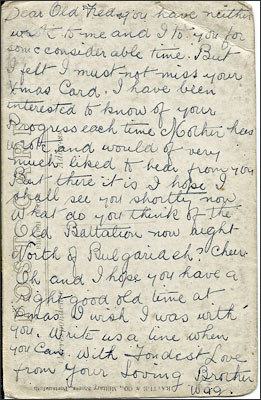 Dear Old Fred you have neither
wrote to me and I to you for
some considerable time. But
I felt I must not miss your
Xmas Card. I have been
interested to know of your
Progress each time Mother has
wrote and would of very
much liked to hear from you
But there it is I hope I
shall see you shortly now
What do you think of the
Old Battalion now right
North of Bulgaria eh? Cheer
Oh and I hope you have a
right good old time at
Xmas I wish I was with
you. Write us a line when
you can. With Fondest Love
from your Loving Brother